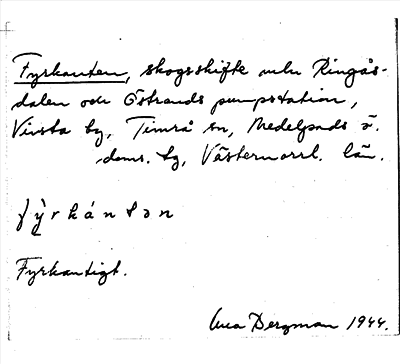 Fyrkanten, skogsskifte mln Ringås-
dalen och Östrands pumpstation,
Vivsta by, Timrå sn, Medelpads ö.
doms. by, Västernorrl. län.
fỳrkán tən
Fyrkantigt.
Bergman 1944.